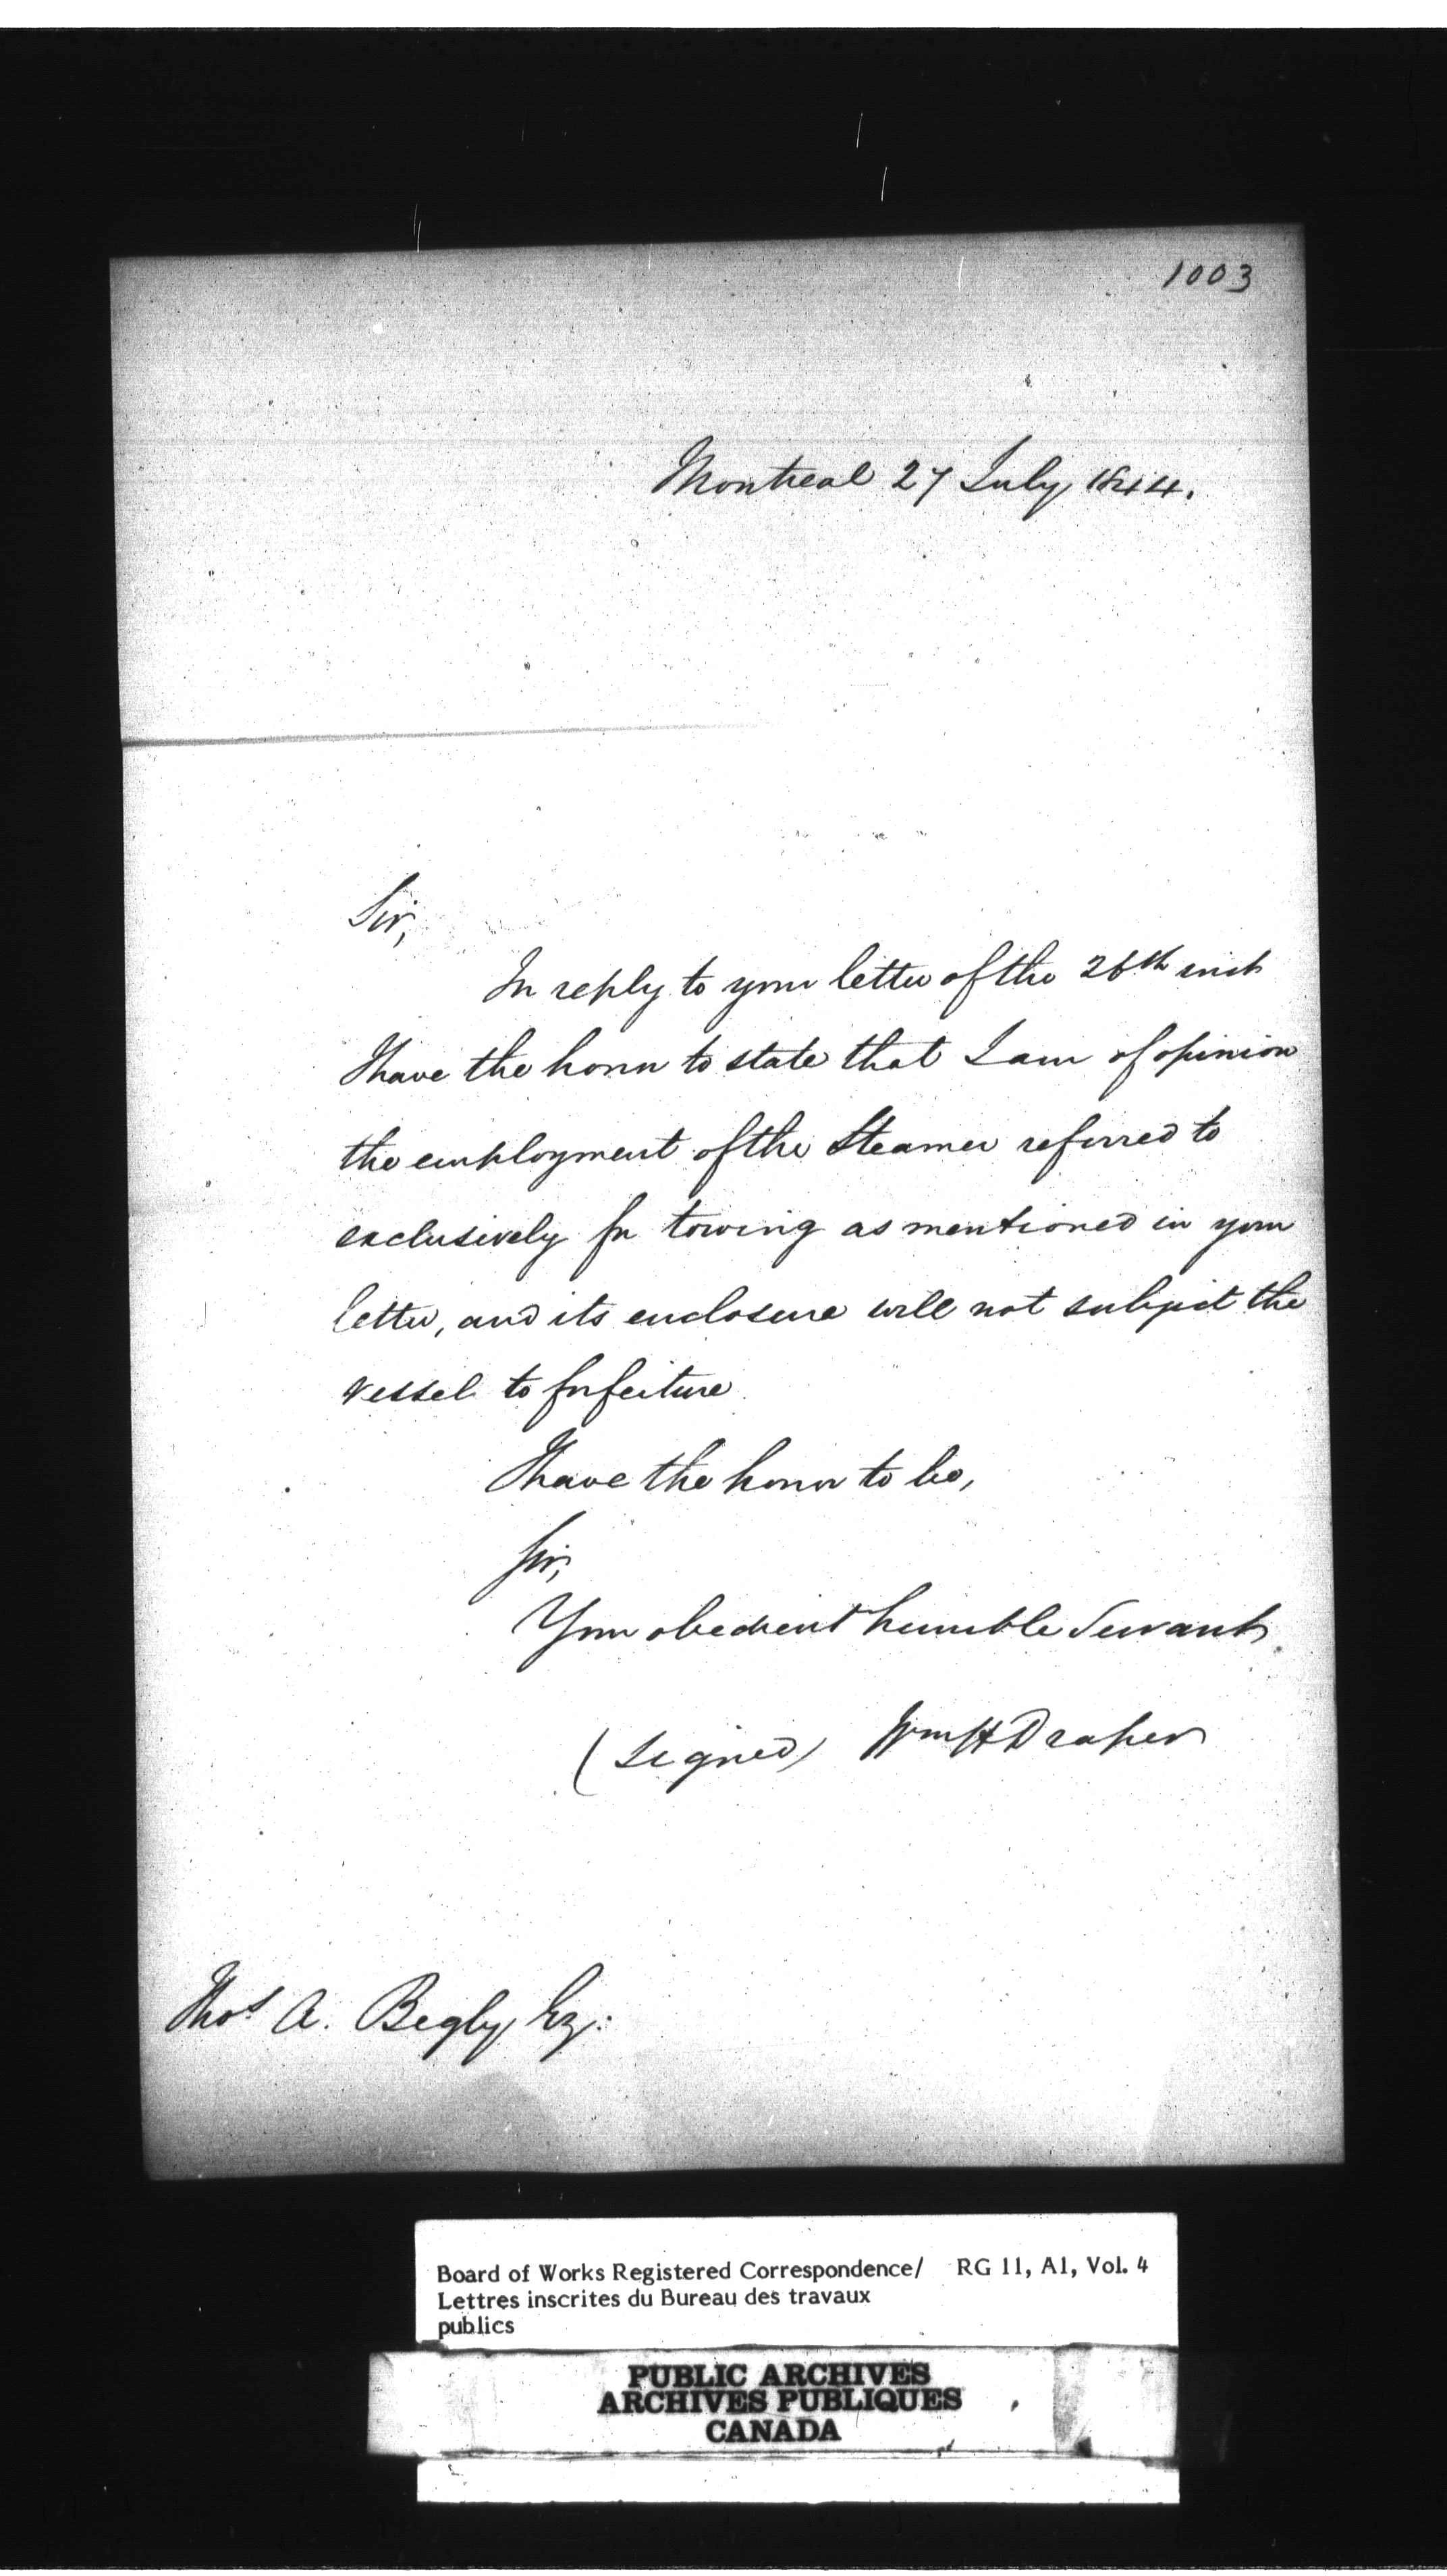 1003
Montreal 27 July 1844.
Sir,
In reply to your letter of the 26th inst
I have the honor to state that I am of opinion
the employment of the Steamer referred to
exclusively for towing as mentioned in your
letter, and its enclosure will not subject the
vessel to forfeiture.
I have the honor to be,
Sir,
Your obedient humble Servant
(signed) Wm H Draper
Thos A. Begly Esq:
Board of Works Registered Correspondence/ RG 11, A1, Vol. 4
Lettres inscrites du Bureau des travaux
publics
PUBLIC ARCHIVES
ARCHIVES PUBLIQUES
CANADA